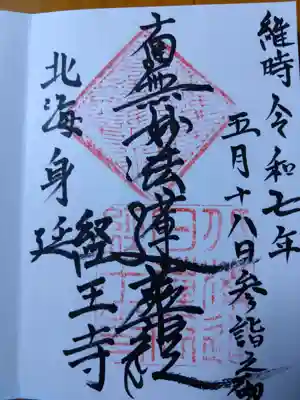 維時令和七年
五月十八日参詣之砌
南無妙法蓮華経
北海身延
経王寺